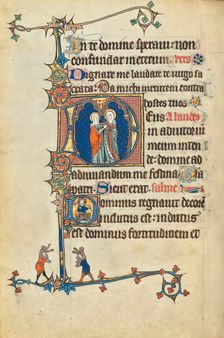 In te domine speravi: non
confundar in eternum. vers
Dignare me laudare te virgo sa
crata: Da michi virtutem contra
hostes tuos
Deus A laudes
in adiutoriu
meum inten
de: domine ad
adiuvandum me festina
patri. Sicut erat. salme
Dominus regnavit decorem
indutus est: indutus
est dominus fortitudinem et